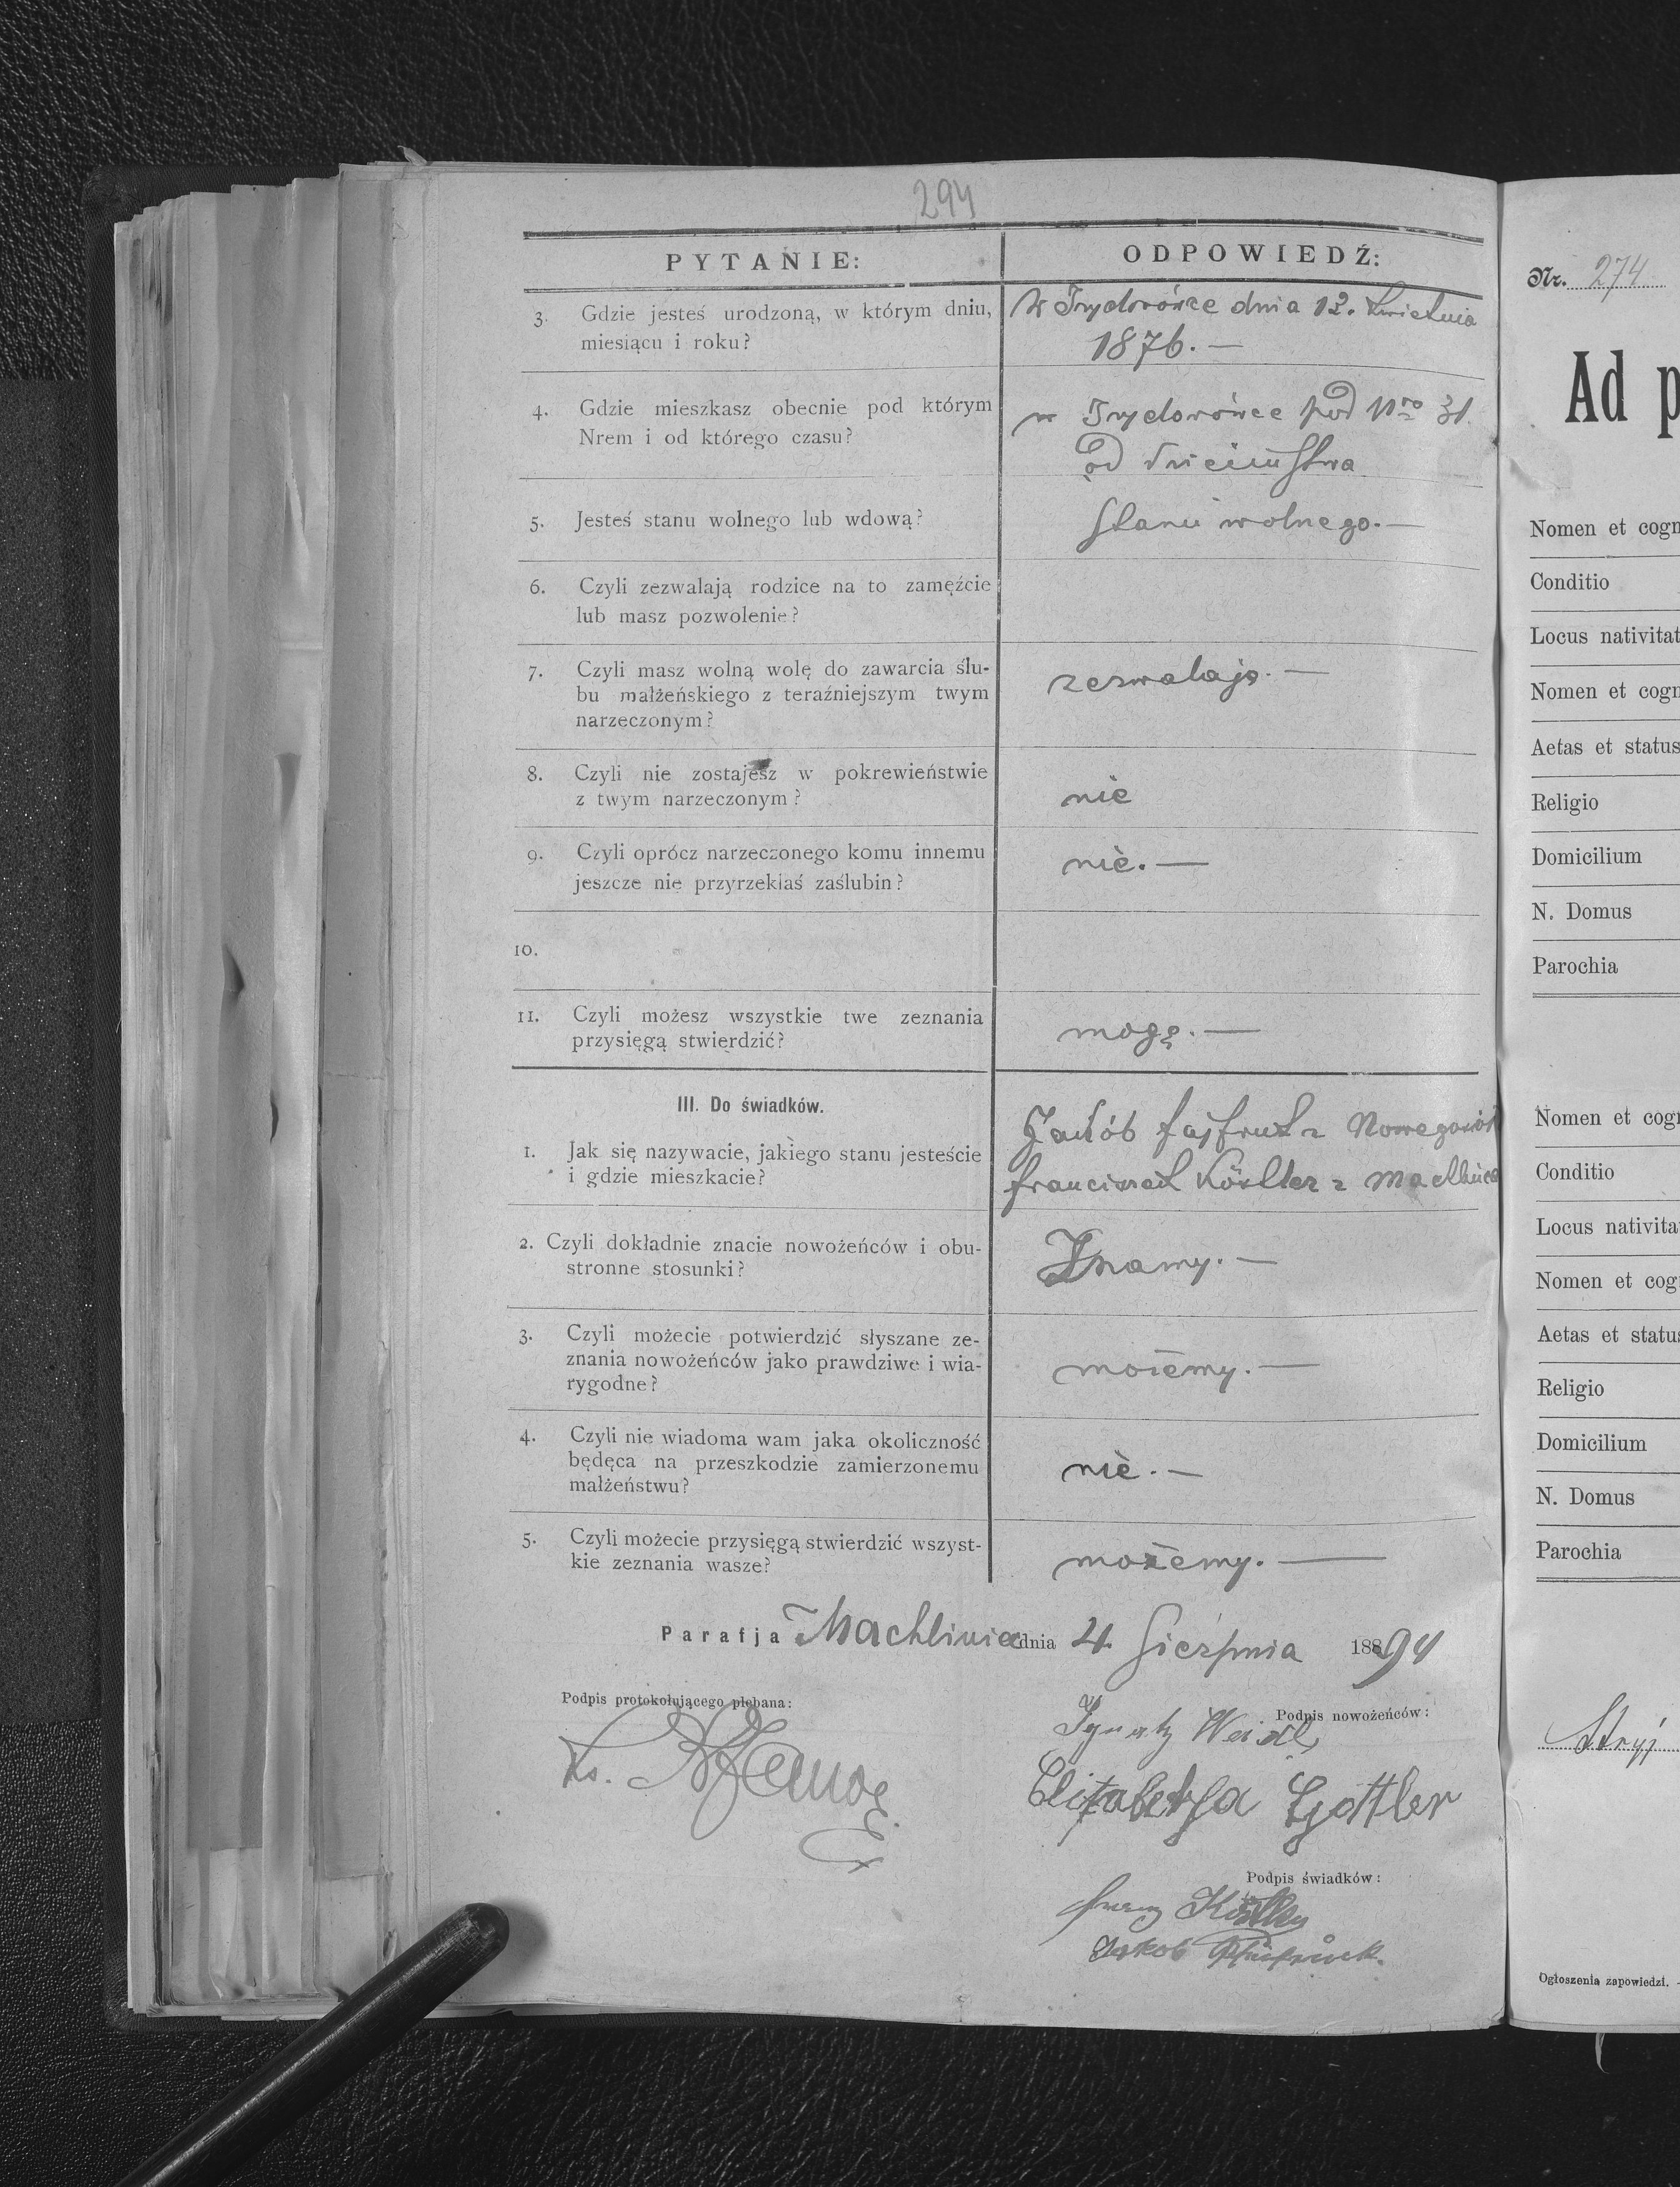 294
PYTANIE:
ODPOWIEDŹ:
3. Gdzie jesteś urodzoną, w którym dniu,
miesiącu i roku?
W Izydorówce dnia 12. kwietnia
1876. —
4. Gdzie mieszkasz obecnie pod którym
Nrem i od którego czasu?
w Izydorówce pod Nro 31.
od dzieciństwa
5. Jesteś stanu wolnego lub wdową?
stanu wolnego. —
6. Czyli zezwalają rodzice na to zamęźcie
lub masz pozwolenie?
7. Czyli masz wolną wolę do zawarcia ślu-
bu małżeńskiego z teraźniejszym twym
narzeczonym?
zezwalają. —
8. Czyli nie zostajesz w pokrewieństwie
z twym narzeczonym?
nie
9. Czyli oprócz narzeczonego komu innemu
jeszcze nie przyrzekłaś zaślubin?
nie. —
10.
11. Czyli możesz wszystkie twe zeznania
przysięgą stwierdzić?
mogę. —
III. Do świadków.
1. Jak się nazywacie, jakiego stanu jesteście
i gdzie mieszkacie?
Jakób Fajfruk z
Franciszek z Machlińca
2. Czyli dokładnie znacie nowożeńców i obu-
stronne stosunki?
Znamy. —
3. Czyli możecie potwierdzić słyszane ze-
znania nowożeńców jako prawdziwe i wia-
rygodne?
możemy. —
4. Czyli nie wiadoma wam jaka okoliczność
będęca na przeszkodzie zamierzonemu
małżeństwu?
nie. —
5. Czyli możecie przysięgą stwierdzić wszyst-
kie zeznania wasze?
możemy. —
Parafja Machliniec dnia 4. Sierpnia 18894
Podpis protokołującego plebana:
Ks.
Podpis nowożeńców:
Ignatz Weidl
Elizabetha Gottler
Podpis świadków:
Franz
Jakob
Nr. 274
Ad p
Nomen et cogn
Conditio
Locus nativitat
Nomen et cogn
Aetas et status
Religio
Domicilium
N. Domus
Parochia
Nomen et cogn
Conditio
Locus nativita
Nomen et cog
Aetas et statu
Religio
Domicilium
N. Domus
Parochia
Stryj
Ogłoszenia zapowiedzi. -